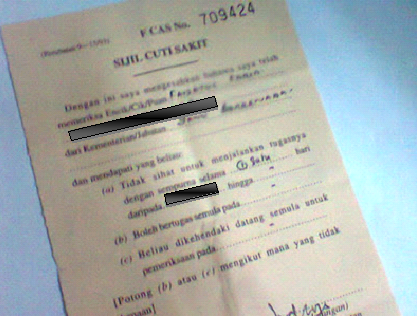 F CAS No. 709424
SIJIL CUTI SAKIT
Dengan ini saya mengesahkan bahawa saya telah
memeriksa Encik/Cik/Puan
dari Kementerian/Jabatan
dan mendapati yang beliau:
(a) Tidak sihat untuk menjalankan tugasnya
dengan sempurna selama ① Satu hari
daripada hingga -
(b) Boleh bertugas semula pada -
(c) Beliau dikehendaki datang semula untuk
pemeriksaan pada -
[Potong (b) atau (c) mengikut mana yang tidak